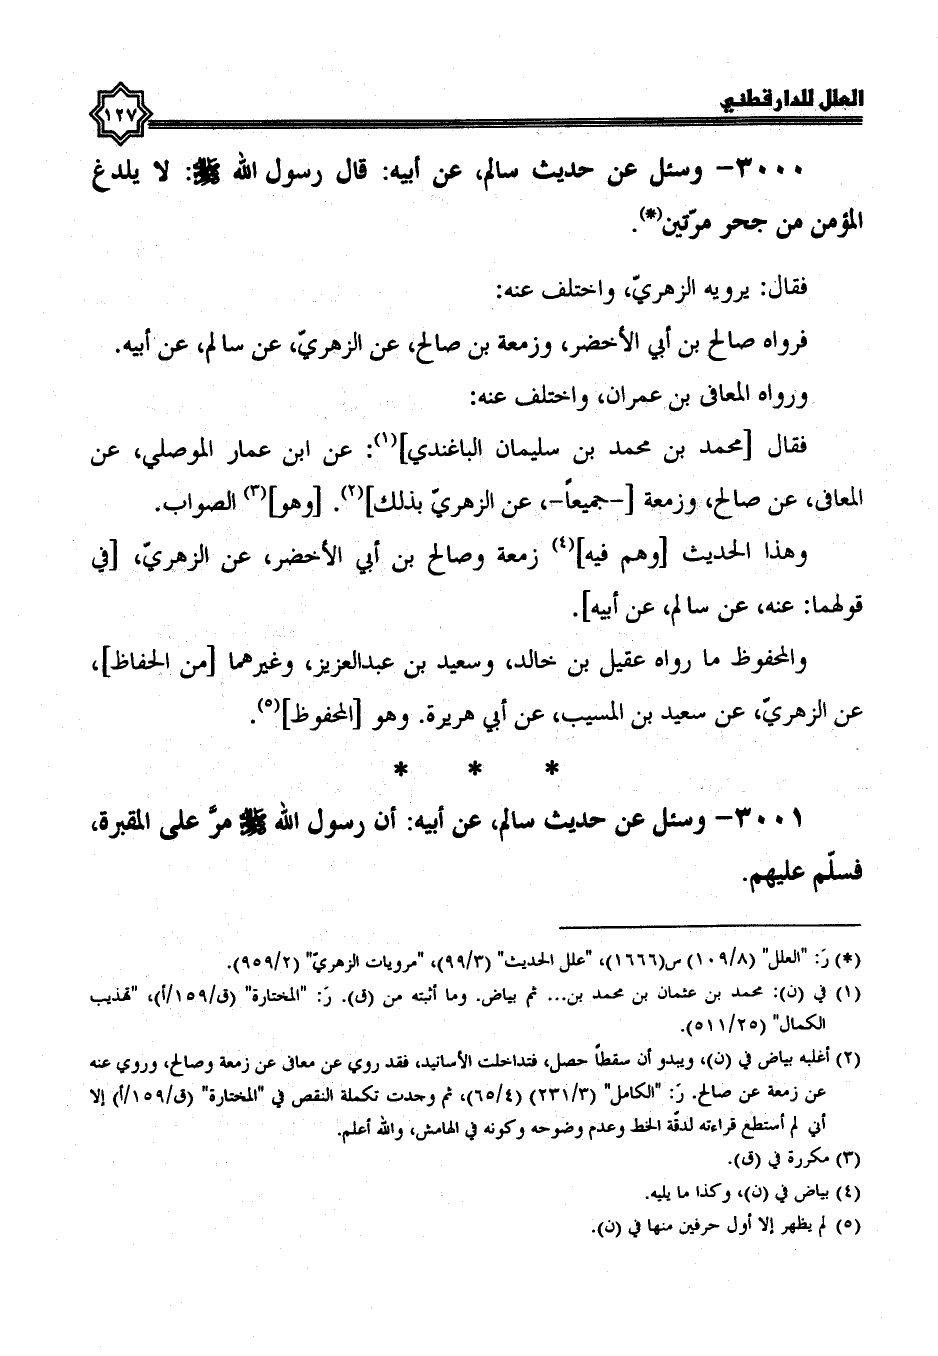 العلل للدارقطني
١٢٧
٣٠٠٠- وسئل عن حديث سالم، عن أبيه: قال رسول الله ﷺ: لا يلدغ
المؤمن من جحر مرّتين(*).
فقال: يرويه الزهريّ، واختلف عنه:
فرواه صالح بن أبي الأخضر، وزمعة بن صالح، عن الزهريّ، عن سالم، عن أبيه.
ورواه المعافى بن عمران، واختلف عنه:
فقال [محمد بن محمد بن سليمان الباغندي](١): عن ابن عمار الموصلي، عن
المعافى، عن صالح، وزمعة [-جميعاً-، عن الزهريّ بذلك](٢). [وهو](٣) الصواب.
وهذا الحديث [وهم فيه](٤) زمعة وصالح بن أبي الأخضر، عن الزهريّ، [في
قولهما: عنه، عن سالم، عن أبيه].
والمحفوظ ما رواه عقيل بن خالد، وسعيد بن عبدالعزيز، وغيرهما [من الحفاظ]،
عن الزهريّ، عن سعيد بن المسيب، عن أبي هريرة. وهو [المحفوظ](٥).
* * *
٣٠٠١- وسئل عن حديث سالم، عن أبيه: أن رسول الله ﷺ مرَّ على المقبرة،
فسلّم عليهم.
(*) رَ: "العلل" (١٠٩/٨) س(١٦٦٦)، "علل الحديث" (٩٩/٣)، "مرويات الزهريّ" (٩٥٩/٢).
(١) في (ن): محمد بن عثمان بن محمد بن... ثم بياض. وما أثبته من (ق). رَ: "المختارة" (ق/١٥٩/أ)، "تهذيب
الكمال" (٥١١/٢٥).
(٢) أغلبه بياض في (ن)، ويبدو أن سقطاً حصل، فتداخلت الأسانيد، فقد روي عن معافى عن زمعة وصالح، وروي عنه
عن زمعة عن صالح. رَ: "الكامل" (٢٣١/٣) (٦٥/٤)، ثم وجدت تكملة النقص في "المختارة" (ق/١٥٩/أ) إلا
أني لم أستطع قراءته لدقّة الخط وعدم وضوحه وكونه في الهامش، والله أعلم.
(٣) مكررة في (ق).
(٤) بياض في (ن)، وكذا ما يليه.
(٥) لم يظهر إلا أول حرفين منها في (ن).